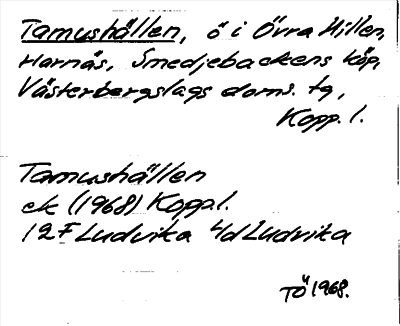 Tamushällen, ö i Övra Hillen,
Harnäs, Smedjebackens köp,
Västerbergslags doms. tg,
Kopp. l.
Tamushällen
ek (1968) Kopp.l.
12F Ludvika 4d Ludvika
TÖ 1968.